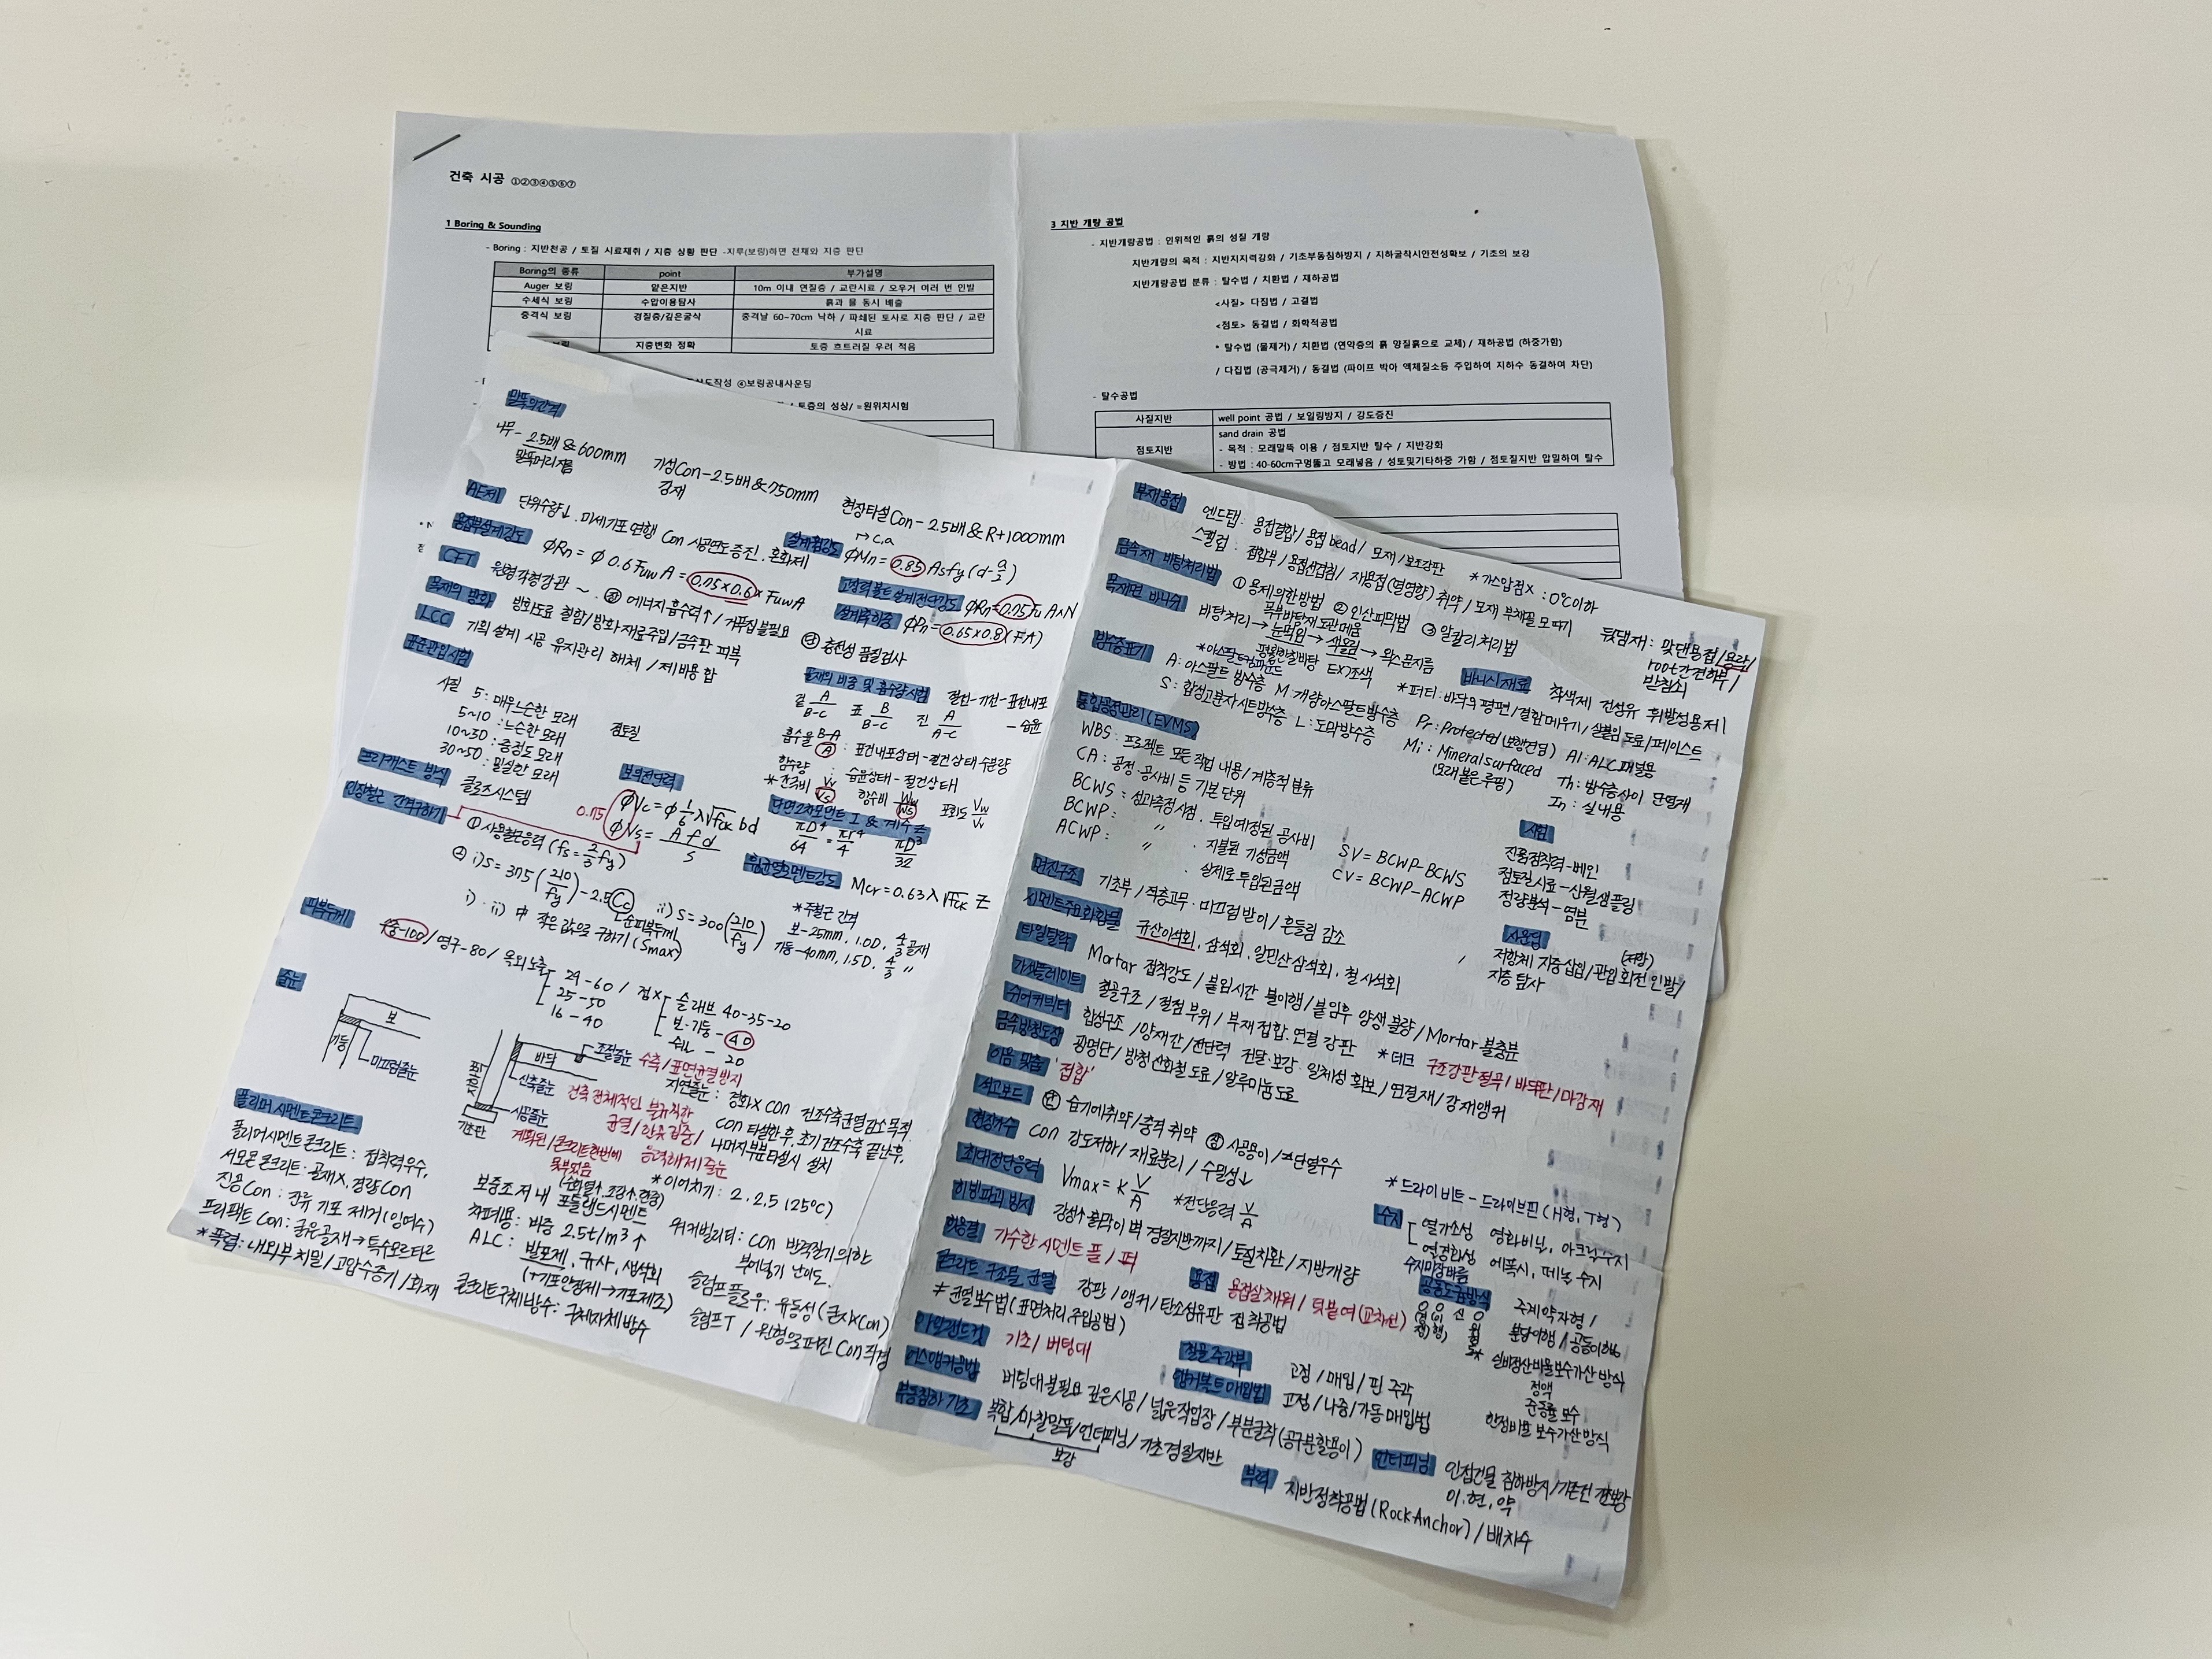 건축 시공 ①②③④⑤⑥⑦
1 Boring & Sounding
- Boring : 지반천공 / 토질 시료채취 / 지층 상황 판단 -지루(보링)하면 천재와 지층 판단
Boring의 종류 point 부가설명
Auger 보링 얕은지반 10m 이내 연질층 / 교란시료 / 오우거 여러 번 인발
수세식 보링 수압이용탐사 흙과 물 동시 배출
충격식 보링 경질층/깊은굴삭 충격날 60~70cm 낙하 / 파쇄된 토사로 지층 판단 / 교란
시료
보링 지층변화 정확 토층 흐트러질 우려 적음
도작성 ④보링공내사운딩
/ 토층의 성상/ =원위치시험
3 지반 개량 공법
- 지반개량공법 : 인위적인 흙의 성질 개량
지반개량의 목적 : 지반지지력강화 / 기초부동침하방지 / 지하굴착시안전성확보 / 기초의 보강
지반개량공법 분류 : 탈수법 / 치환법 / 재하공법
<사질> 다짐법 / 고결법
<점토> 동결법 / 화학적공법
* 탈수법 (물제거) / 치환법 (연약층의 흙 양질흙으로 교체) / 재하공법 (하중가함)
/ 다짐법 (공극제거) / 동결법 (파이프 박아 액체질소등 주입하여 지하수 동결하여 차단)
- 탈수공법
사질지반 well point 공법 / 보일링방지 / 강도증진
sand drain 공법
점토지반 - 목적 : 모래말뚝 이용 / 점토지반 탈수 / 지반강화
- 방법 : 40-60cm구멍뚫고 모래넣음 / 성토및기타하중 가함 / 점토질지반 압밀하여 탈수
말뚝의간격
나무 - 2.5배 & 600mm 기성Con - 2.5배 & 750mm 현장타설Con - 2.5배 & R+1000mm
말뚝머리지름 강재
AE제 단위수량↓. 미세기포 연행! Con 시공연도증진. 혼화제
용접부설계강도 ΦRn = Φ 0.6 Fuw A = 0.75×0.6× FuwA
설계휨강도 ΦMn = 0.85 Asfy (d-a/2)
CFT 원형각형강관 ~ . 장 에너지흡수력↑ / 거푸집불필요 단 충전성 품질검사
고력볼트설계전단강도 ΦRn = 0.75 Fu A×N
설계축하중 ΦPn = 0.65×0.8 (FA)
목재의 방화 방화도료 칠함/방화재료주입/금속판 피복
LCC 기획 설계 시공 유지관리 해체 / 제비용 합
표준관입시험
사질 5 : 매우느슨한 모래 점토질
5~10 : 느슨한 모래
10~30 : 중정도 모래
30~50 : 밀실한 모래
골재의 비중 및 흡수량시험 절건-기건-표건내포-습윤
겉 A/B-C 표 B/B-C 진 A/A-C
흡수율 B-A/A : 표건내포상태-절건상태 수분량
함수량 : 습윤상태 - 절건상태
*간극비 Vv/Vs 함수비 Ww/Ws 포화도 Vw/Vv
프리캐스트 방식 클로즈시스템
보의전단력 ΦVc = Φ 1/6 λ√fck bd
0.75 ΦVs = A f d / S
단면2차모멘트 I & 계수 Z
πD⁴/64 = πr⁴/4 πD³/32
인장철근 간격구하기
① 사용철근응력 (fs = 2/3 fy)
② i) S = 375 (210/fy) - 2.5Cc ii) S = 300 (210/fy)
순피복두께
i) · ii) 中 작은 값으로 구하기 (Smax)
휨균열모멘트강도 Mcr = 0.63 λ √fck Z
*주철근 간격
보-25mm, 1.0D, 4/3골재
기둥-40mm, 1.5D, 4/3 〃
피복두께 수중-100 / 영구-80 / 옥외노출 29-60 / 접× 슬래브 40-35-20
25-50 보·기둥-40
16-40 쉘 - 20
줄눈
보
기둥
미끄럼줄눈
바닥
조절줄눈 수축/표면균열방지
신축줄눈 건축 전체적인 불규칙한
균열/한곳 집중/
시공줄눈 계획된/콘크리트한번에
못부었음
기초판
응력해제줄눈
지연줄눈 : 경화× con 건조수축균열감소목적
Con 타설한후, 초기건조수축 끝난후,
나머지부분타설시 설치
*이어치기 : 2, 2.5 (25℃)
폴리머 시멘트콘크리트
폴리머시멘트콘크리트 : 접착력우수,
서모콘 콘크리트 : 골재×, 경량Con
진공Con : 잔류 기포 제거(잉여수)
프리팩트 Con : 굵은골재→특수모르타르
*폭렬 : 내외부치밀/고압수증기/화재
보증조저내 포틀랜드시멘트
차폐용 : 비중 2.5t/m³↑
ALC : 발포제, 규사, 생석회
(+기포안정제→기포제조)
콘크리트구체방수 : 구체자체방수
워커빌리티 : con 반죽질기의한
부어넣기 난이도.
슬럼프 플로우 : 유동성 (굳지×Con)
슬럼프T / 원형으로퍼진 Con직경
부재용접 엔드탭 : 용접결함/용접bead/모재/보조강판 *가스압접× : 0℃이하
스캘럽 : 접합부/용접선겹침/재용접(열영향)취약/모재 부채꼴 모따기
뒷댐재 : 맞댄용접/용락/
root간격하부/
받침쇠
금속재 바탕처리법 ① 용제의한방법 ② 인산피막법 ③ 알칼리처리법
목재면 바니쉬 바탕처리→눈먹임→색올림→왁스문지름
목부바탕재 도관메움
평활한칠바탕 EX)조색
바니시재료 착색제 건성유 휘발성용제
*퍼티 : 바닥의 평편/결함메우기/살붙임 도료/페이스트
방수층표기 *아스팔트컴파운드
A : 아스팔트 방수층 M 개량아스팔트방수층
S : 합성고분자시트방수층 L : 도막방수층
Pr : Protected (보행전담) Al : ALC패널용
Mi : Mineral surfaced Th : 방수층사이 단열재
(모래붙은루핑) In : 실내용
통합공정관리(EVMS)
WBS : 프로젝트 모든 작업 내용/계층적 분류
CA : 공정·공사비 등 기본 단위
BCWS : 성과측정시점 . 투입예정된 공사비
BCWP : 〃 . 지불된 기성금액
ACWP : 〃 . 실제로투입된금액
SV = BCWP-BCWS
CV = BCWP-ACWP
시험
진흙점착력-베인
점토질시료-신월샘플링
정량분석-염분
면진구조 기초부/적층고무·미끄럼받이/흔들림 감소
시멘트주요화합물 규산이석회, 삼석회, 알민산삼석회, 철사석회
사운딩 (저항)
저항체 지중삽입/관입 회전 인발/
지층 탐사
타일탈락 Mortar 접착강도/붙임시간 불이행/붙임후 양생 불량/Mortar불충분
가셋플레이트 철골구조/절점 부위/부재 접합·연결 강판
*데크 구조강판절곡/바닥판/마감재
쉬어커넥터 합성구조/양재간/전단력 전달·보강·일체성 확보/연결재/강재앵커
금속방청도장 광명단/방청산화철도료/알루미늄도료
이음 맞춤 '접합'
석고보드 단 습기에취약/충격 취약 장 시공용이/*단열우수
현장가수 con 강도저하/재료분리/수밀성↓
최대전단응력 Vmax = k V/A *전단응력 V/A
*드라이비트 - 드라이브핀 (H형, T형)
히빙파괴 방지 강성↑흙막이 벽 경질지반까지/토질치환/지반개량
수지 열가소성 염화비닐, 아크릴수지
열경화성 에폭시, 페놀 수지
헛응결 가수한 시멘트 풀 / 퍼
콘크리트 구조물 균열 강판/앵커/탄소섬유판 접착공법
≠ 균열보수법 (표면처리, 주입공법)
용접 용접살채워/덧붙여(교차선)
공동도급방식 주계약자형/
분담이행/공동이행
실비정산비율보수가산 방식
정액
준동률 보수
한정비율 보수가산방식
아일랜드컷 기초/버팀대
철골 주각부 고정/매입/핀 주각
어스앵커공법 버팀대불필요 깊은시공/넓은작업장/부분굴착(공구분할용이)
앵커볼트매입법 고정/나중/가동매입법
부동침하 기초 복합/마찰말뚝/언더피닝/기초경질지반
보강
언더피닝 인접건물 침하방지/기존건
이, 현, 약
부력 지반정착공법 (Rock Anchor) / 배치수